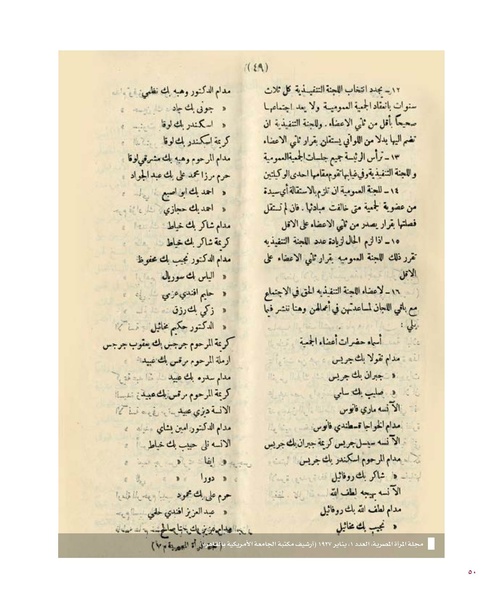 (٤٩)
١٢ - يجدد انتخاب اللجنة التنفيذية كل ثلاث
سنوات بانعقاد الجمعية العمومية ولا يعد اجتماعها
صحيحاً بأقل من ثلثي الاعضاء . وللجنة التنفيذية ان
تضم اليها بدلا من اللواتي يستقلن بقرار ثلثي الاعضاء
١٣ - ترأس الرئيسة جميع جلسات الجمعية العمومية
واللجنة التنفيذية وفي غيابها تقوم مقامها احدى الوكيلتين
١٤ - للجنة العمومية ان تلزم بالاستقالة أي سيدة
من عضوية الجمعية متى خالفت مبادئها . فان لم تستقل
فصلتها بقرار يصدر من ثلثي الاعضاء على الاقل
١٥ - اذا لزم الحال لزيادة عدد اللجنة التنفيذيه
تقرر ذلك اللجنة العموميه بقرار ثلثي الاعضاء على
الاقل
١٦ - لاعضاء اللجنة التنفيذيه الحق في الاجتماع
مع باقي اللجان لمساعدتهن في أعمالهن وهنا ننشر فيما
يلي :
أسماء حضرات أعضاء الجمعية
مدام نقولا بك جريس
« جبران بك جريس
« صليب بك سامي
الآنسه ماري فانوس
مدام الخواجا قسطندي فانوس
الآنسه سيسل جريس كريمة جبران بك جريس
مدام المرحوم اسكندر بك جريس
« شاكر بك روفائيل
الآنسه بهيجه لطف الله
مدام لطف الله بك روفائيل
« نجيب بك مخائيل
مدام الدكتور وهبه بك نظمي
« جوني بك جاد
« اسكندر بك لوقا
كريمة اسكندر بك لوقا
مدام المرحوم وهبه بك مشرقي لوقا
حرم مرزا محمد علي بك عبد الجواد
« احمد بك ابو اصبع
« احمد بك حجازي
مدام شاكر بك خياط
كريمة شاكر بك خياط
مدام الدكتور نجيب بك محفوظ
« الياس بك سوريال
« حليم افندي عزمي
« زكي بك رزق
« الدكتور حكيم مخائيل
كريمة المرحوم جرجس بك يعقوب جرجس
ارملة المرحوم مرقس بك عبيد
مدام سدره بك عبيد
كريمة المرحوم مرقس بك عبيد
الانسة ديزي عبيد
مدام الدكتور امين بشاي
الانسه للي حبيب بك خياط
« ايفا « « «
« دورا « « «
حرم علي بك محمود
« عبد العزيز افندي حقي
مجلة المرأة المصرية، العدد ١، يناير ١٩٢٧ (أرشيف مكتبة الجامعة الأمريكية بالقاهرة)
٥٠